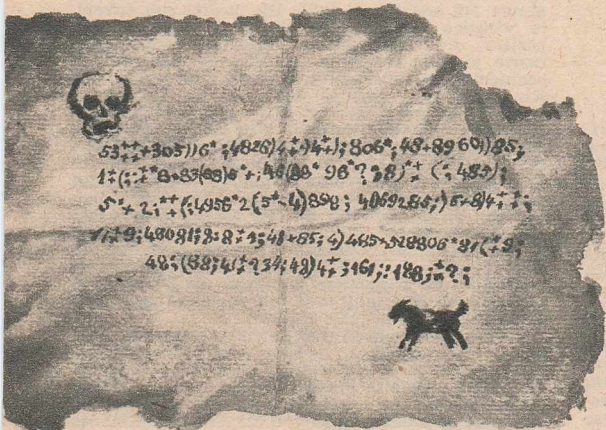 53‡‡†305))6*;4826)4‡)4‡);806*;48†8960))85;
1‡(;:‡*8†83(88)6*†;46(88*96*?;8)*‡(;485);
5*†2:*‡(;4956*2(5*-4)898;4069285;)6†8)4‡‡;
1‡9;48081;8:8‡1;48†85;4)485†528806*81(‡9;
48;(88;4(‡?34;48)4‡;161;:188;‡?;